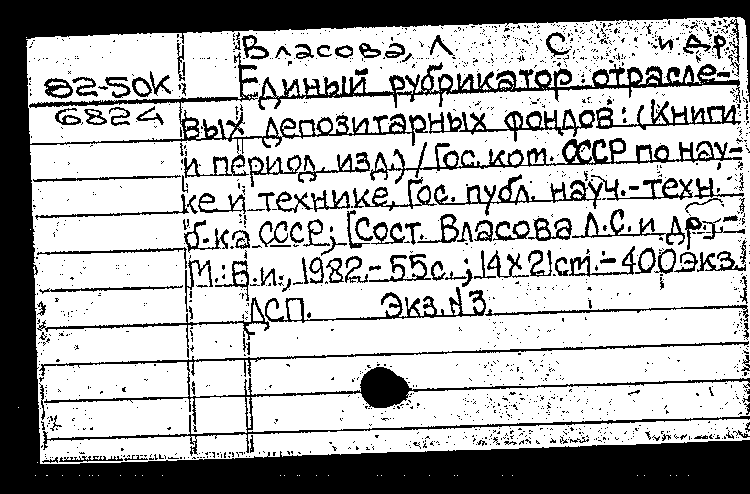 Власова, Л С и др
82-50К Единый рубрикатор отрасле-
6824 вых депозитарных фондов: (Книги
и период. изд.) / Гос. ком. СССР по нау-
ке и технике, Гос. публ. науч.-техн.
б-ка СССР; [Сост. Власова Л.С. и др.].-
М.: Б.и., 1982.- 55с.; 14х21ст.- 400экз.
ДСП. Экз. N 3.